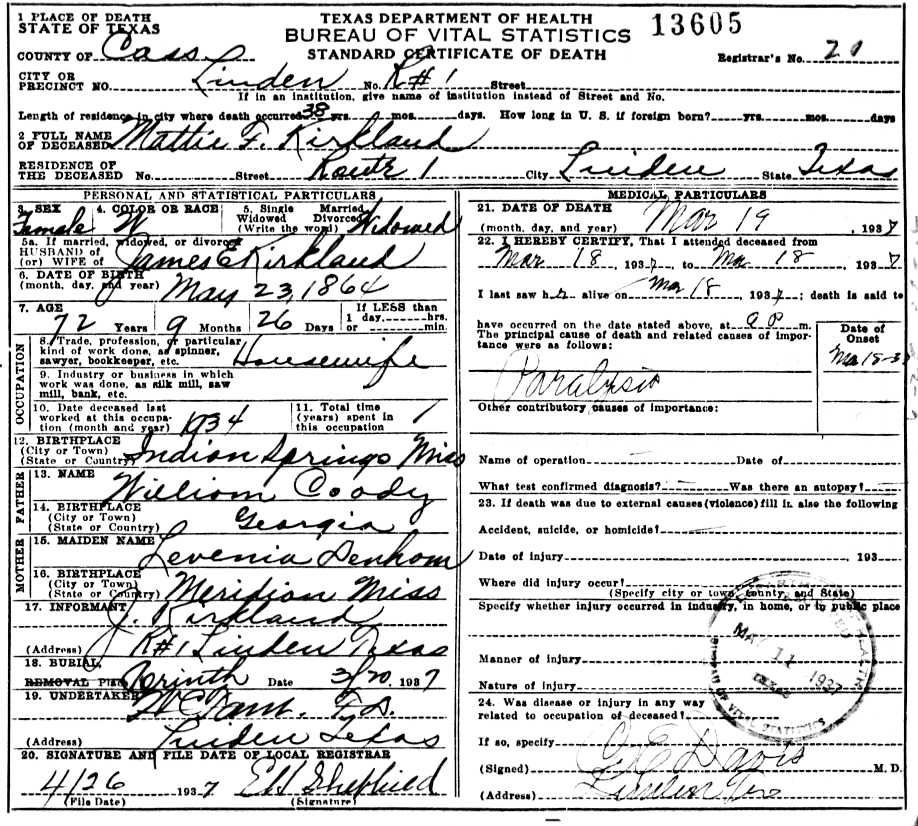 1 PLACE OF DEATH
STATE OF TEXAS
TEXAS DEPARTMENT OF HEALTH
BUREAU OF VITAL STATISTICS
STANDARD CERTIFICATE OF DEATH
13605
COUNTY OF Cass
Registrar's No. 20
CITY OR PRECINCT NO. Linden No. R#1 Street
If in an institution, give name of institution instead of Street and No.
Length of residence in city where death occurred 38 yrs. mos. days. How long in U. S. if foreign born? yrs. mos. days
2 FULL NAME OF DECEASED Mattie F. Kirkland
RESIDENCE OF THE DECEASED No. Street Route 1 City Linden State Texas
PERSONAL AND STATISTICAL PARTICULARS
3. SEX Female
4. COLOR OR RACE W
5. Single Married Widowed Divorced (Write the word) Widowed
5a. If married, widowed, or divorced
HUSBAND OF (or) WIFE OF James E Kirkland
6. DATE OF BIRTH (month, day, and year) May 23, 1864
7. AGE 72 Years 9 Months 26 Days
If LESS than 1 day, hrs. or min.
OCCUPATION
8. Trade, profession, or particular kind of work done, as spinner, sawyer, bookkeeper, etc. Housewife
9. Industry or business in which work was done, as silk mill, saw mill, bank, etc.
10. Date deceased last worked at this occupation (month and year) 1934
11. Total time (years) spent in this occupation
12. BIRTHPLACE (City or Town) (State or Country) Indian Springs Miss
FATHER
13. NAME William Coody
14. BIRTHPLACE (City or Town) (State or Country) Georgia
MOTHER
15. MAIDEN NAME Levenia Denhom
16. BIRTHPLACE (City or Town) (State or Country) Meridian Miss
17. INFORMANT J. Kirkland
(Address) R#1 Linden Texas
18. BURIAL, REMOVAL Place Corinth Date 3/20, 1937
19. UNDERTAKER
(Address) Linden Texas
20. SIGNATURE AND FILE DATE OF LOCAL REGISTRAR
4/26 1937
(File Date) (Signature)
MEDICAL PARTICULARS
21. DATE OF DEATH (month, day, and year) Mar 19, 1937
22. I HEREBY CERTIFY, That I attended deceased from
Mar 18, 1937, to Mar 18, 1937
I last saw her alive on Mar 18, 1937; death is said to
have occurred on the date stated above, at m.
The principal cause of death and related causes of importance were as follows:
Date of Onset
Paralysis
Other contributory causes of importance:
Name of operation Date of
What test confirmed diagnosis? Was there an autopsy?
23. If death was due to external causes (violence) fill in also the following
Accident, suicide, or homicide?
Date of injury , 193
Where did injury occur?
(Specify city or town, county, and State)
Specify whether injury occurred in industry, in home, or in public place
Manner of injury
Nature of injury
24. Was disease or injury in any way related to occupation of deceased?
If so, specify
(Signed) G E Davis M. D.
(Address) Linden Tex
BUREAU OF VITAL STATISTICS
MAY 11 1937
TEXAS